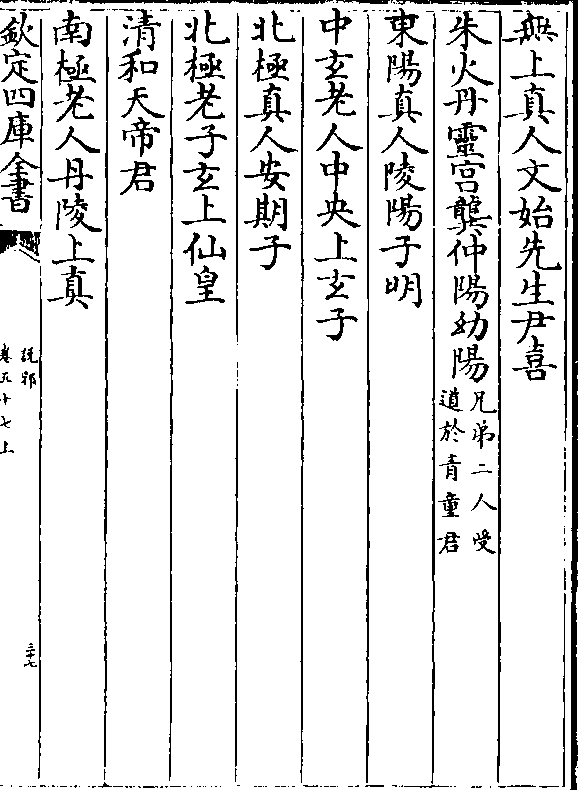 無上真人文始先生尹喜
朱火丹靈宫龔仲陽幼陽兄弟二人受道於青童君
東陽真人陵陽子明
中玄老人中央上玄子
北極真人安期子
北極老子玄上仙皇
清和天帝君
南極老人丹陵上真
欽定四庫全書
說郛
卷五十七上
三十七